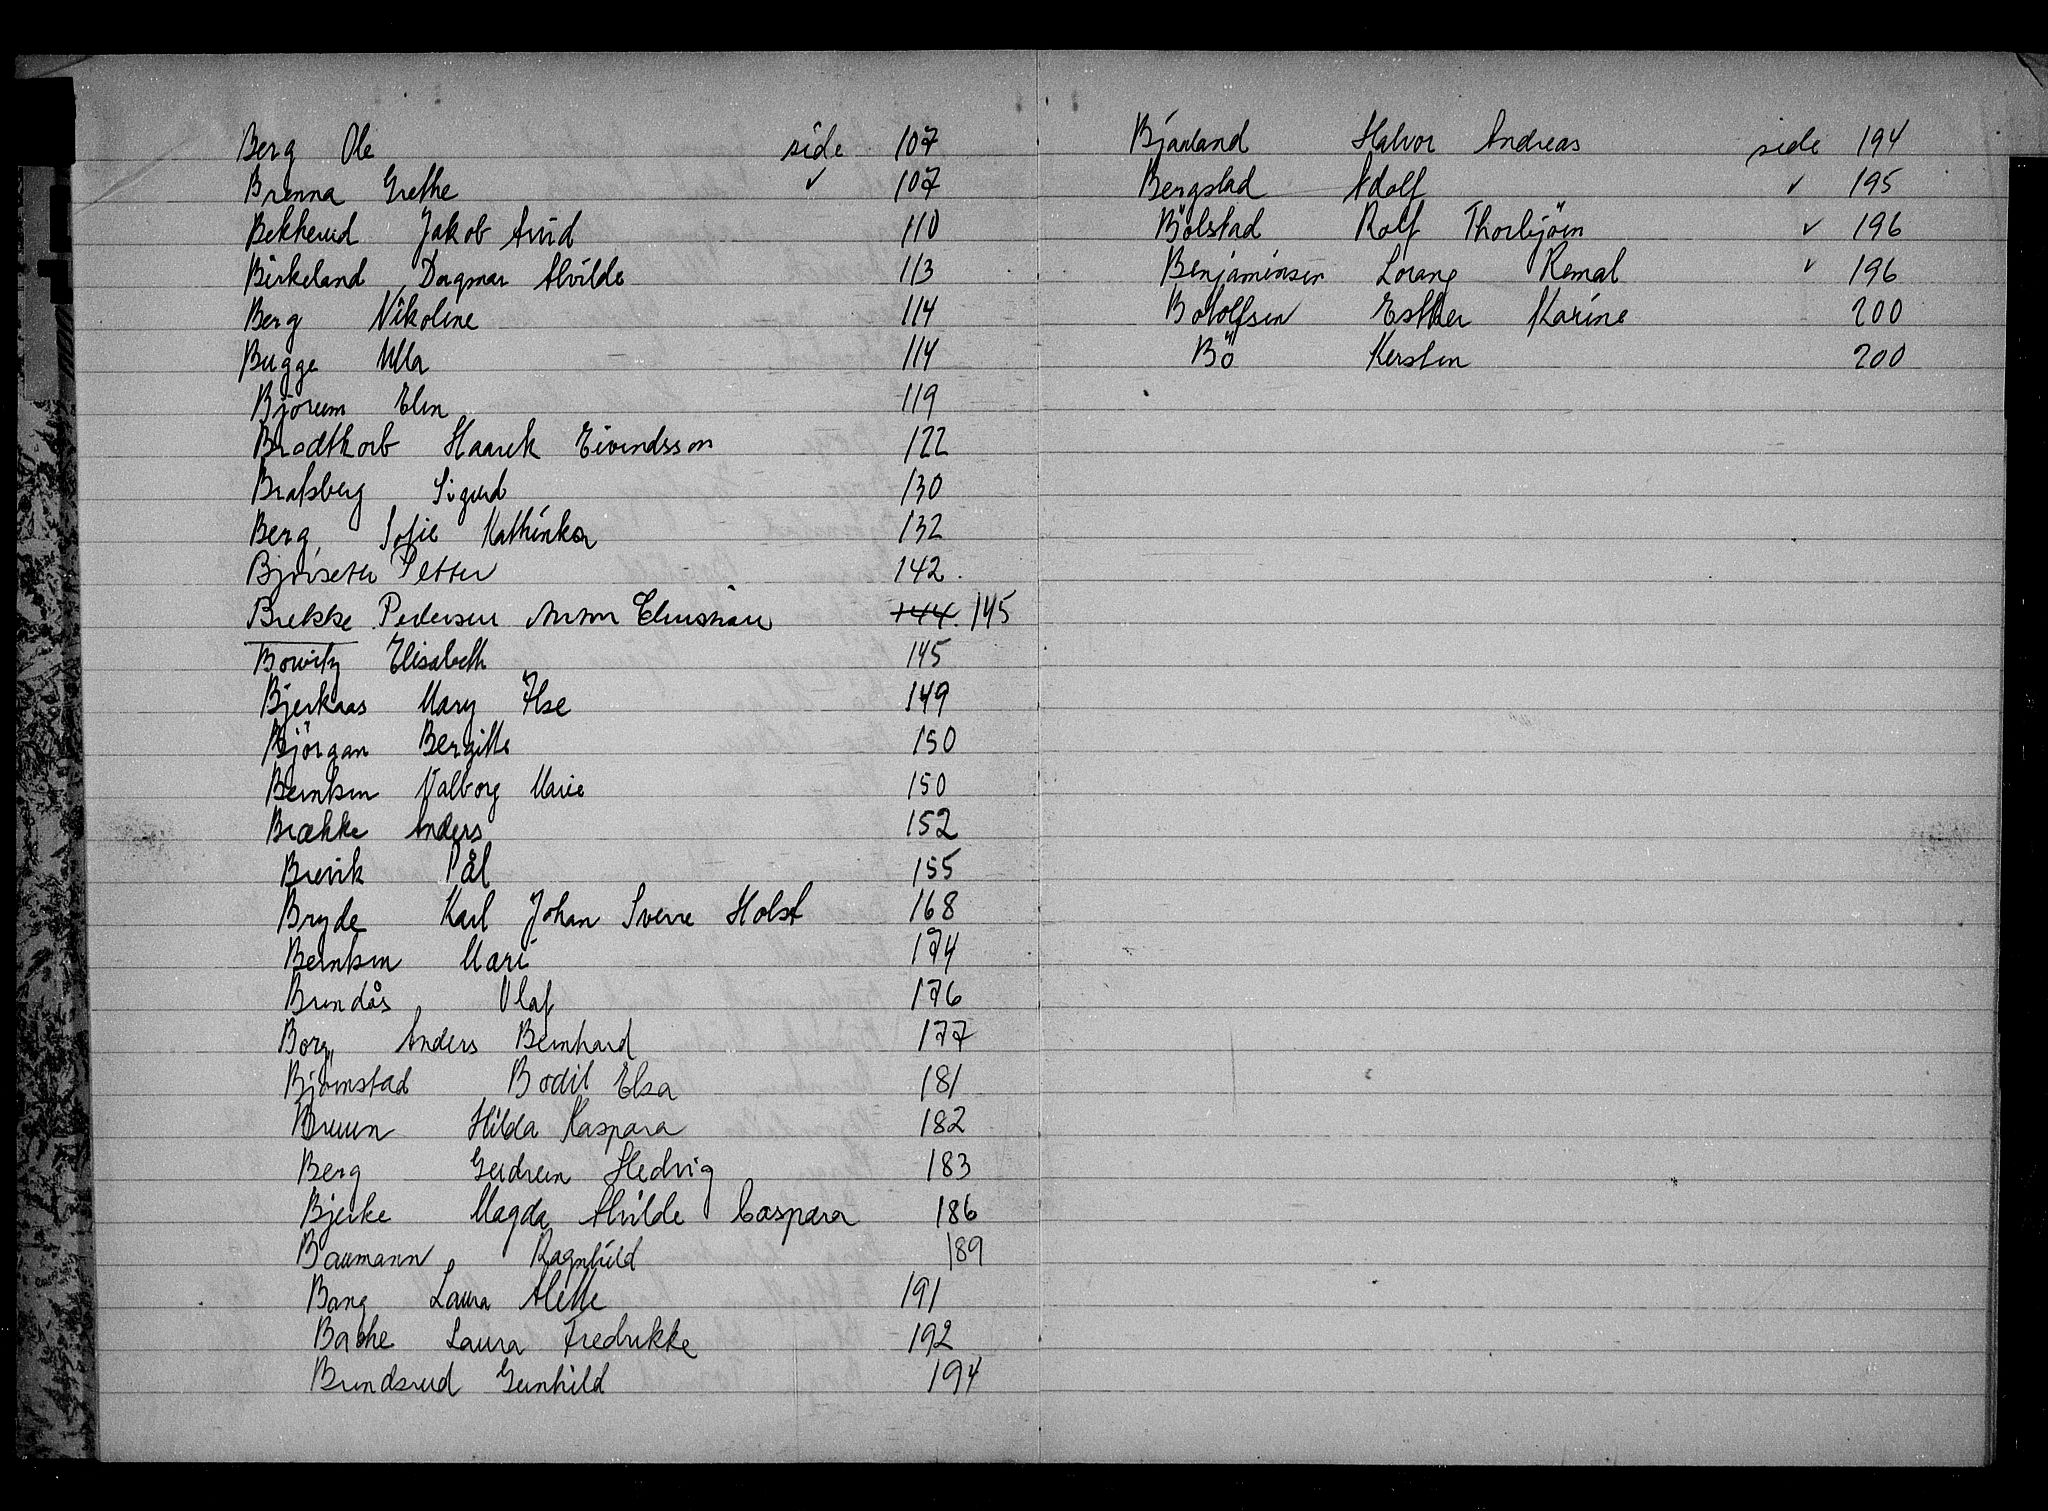 Berg Ole side 107
Brenna Grethe ✓ 107
Bekkerud Jakob Arvid 110
Birkeland Dagmar Alvilde 113
Berg Nikoline 114
Bugge Ulla 114
Bjørum Elin 119
Brodtkorb Haarek Eivindsson 122
Bratsberg Sigurd 130
Berg Sofie Kathinka 132
Bjørseth Petter 142.
Brekke Pedersen Anton Christian 144. 145
Bowitz Elisabeth 145
Bjerkaas Mary Ilse 149
Björgan Bergitte 150
Berntsen Valborg Marie 150
Brække Anders 152
Brevik Pål 155
Bryde Karl Johan Sverre Holst 168
Berntsen Mari 174
Brendås Olaf 176
Borg Anders Bernhard 177
Björnstad Bodil Elsa 181
Bruun Hilda Kaspara 182
Berg Gudrun Hedvig 183
Bjerke Magda Alvilde Caspara 186
Baumann Ragnhild 189
Bang Laura Alette 191
Bache Laura Fredrikke 192
Brundsrud Gunhild 194
Bjaaland Halvor Andreas side 194
Bergstad Adolf ✓ 195
Bölstad Rolf Thorbjörn ✓ 196
Benjaminsen Lorang Remal ✓ 196
Botolfsen Esther Karine 200
Bö Kersten 200